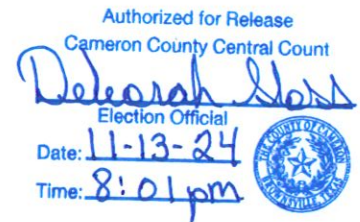 Authorized for Release
Cameron County Central Count
Deborah
Election Official
Date: 11-13-24
Time: 8:01 pm
THE COUNTY OF CAMERON
BROWNSVILLE, TEXAS